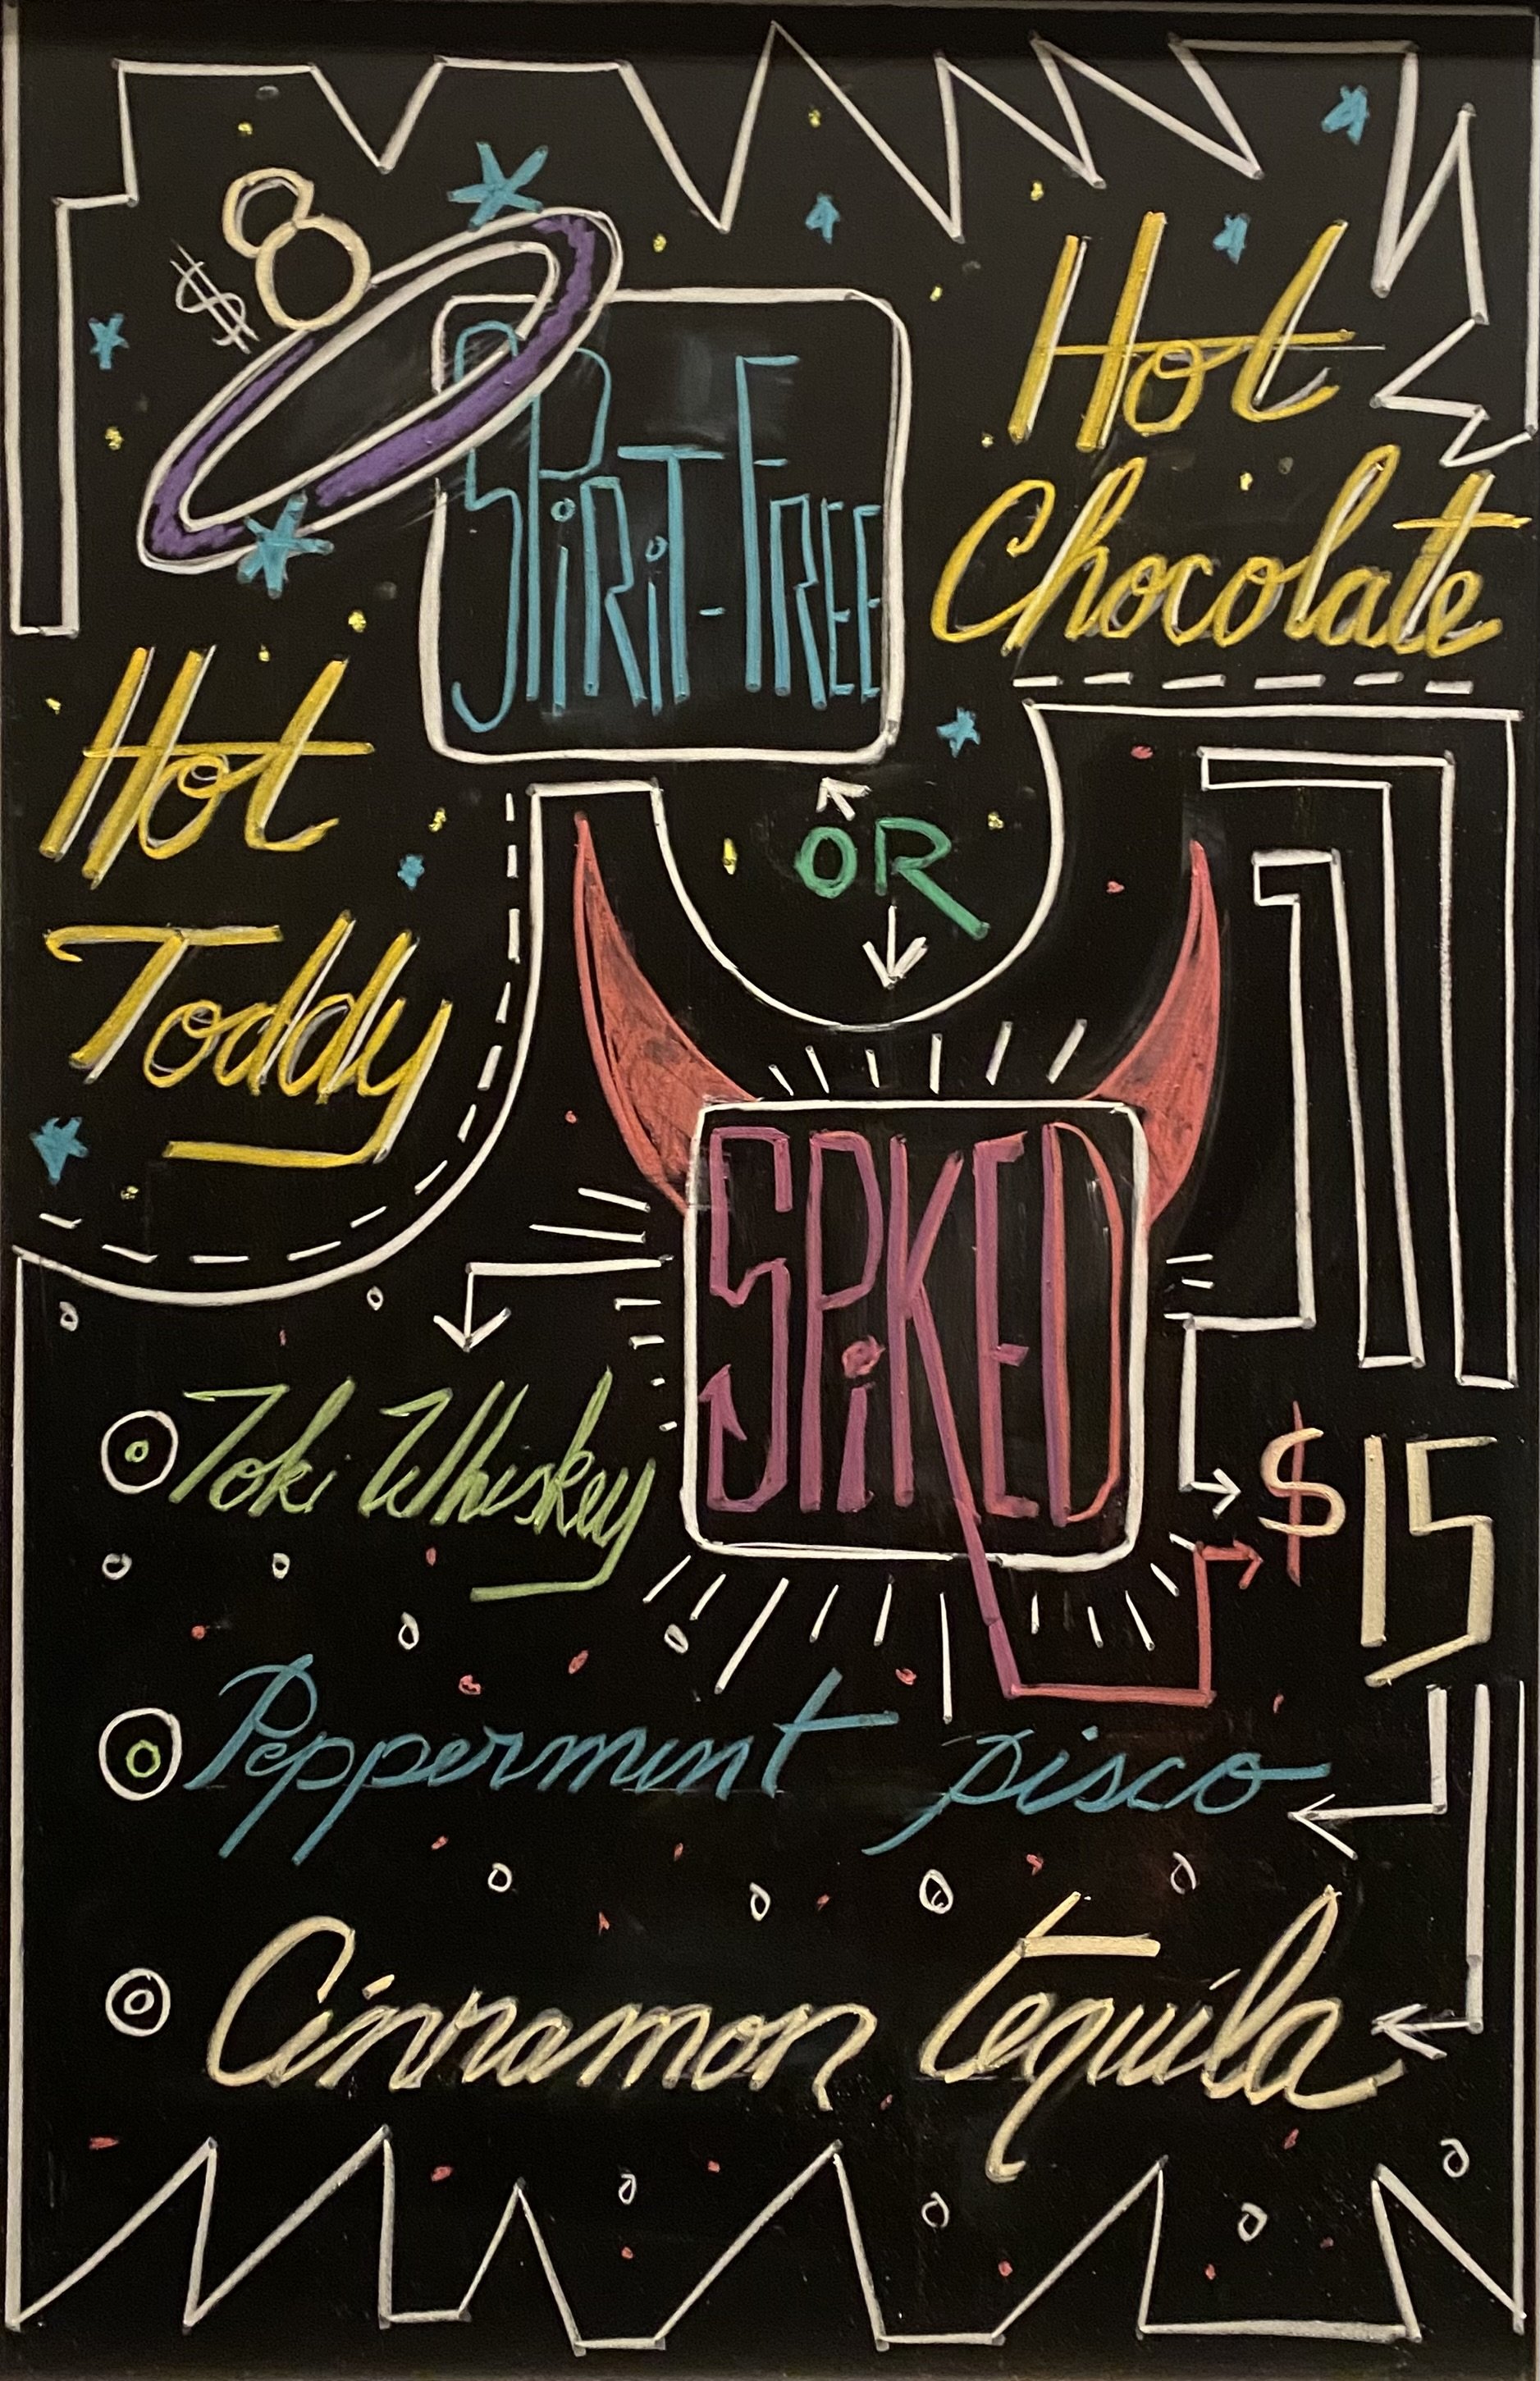 $8
SPiRiT-FREE
Hot
Chocolate
Hot
Toddy
OR
SPiKED
$15
Toki Whiskey
Peppermint pisco
Cinnamon tequila